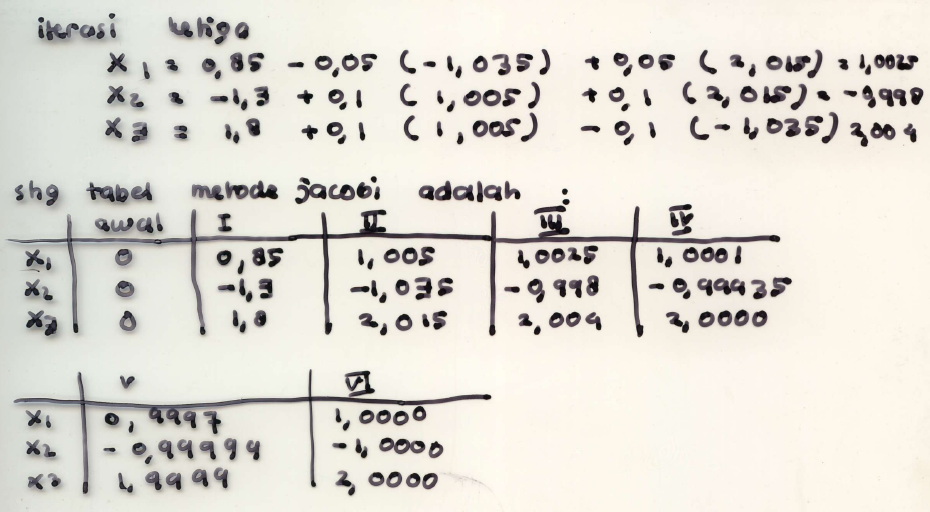 iterasi ketiga
X1 = 0,85 - 0,05 (-1,035) + 0,05 (2,015) = 1,0025
X2 = -1,3 + 0,1 (1,005) + 0,1 (2,015) = -0,998
X3 = 1,8 + 0,1 (1,005) - 0,1 (-1,035) 2,004
shg tabel metode jacobi adalah :
awal I II III IV
X1 0 0,85 1,005 1,0025 1,0001
X2 0 -1,3 -1,035 -0,998 -0,99935
X3 0 1,8 2,015 2,004 2,0000
V VI
X1 0,9997 1,0000
X2 -0,99994 -1,0000
X3 1,9999 2,0000